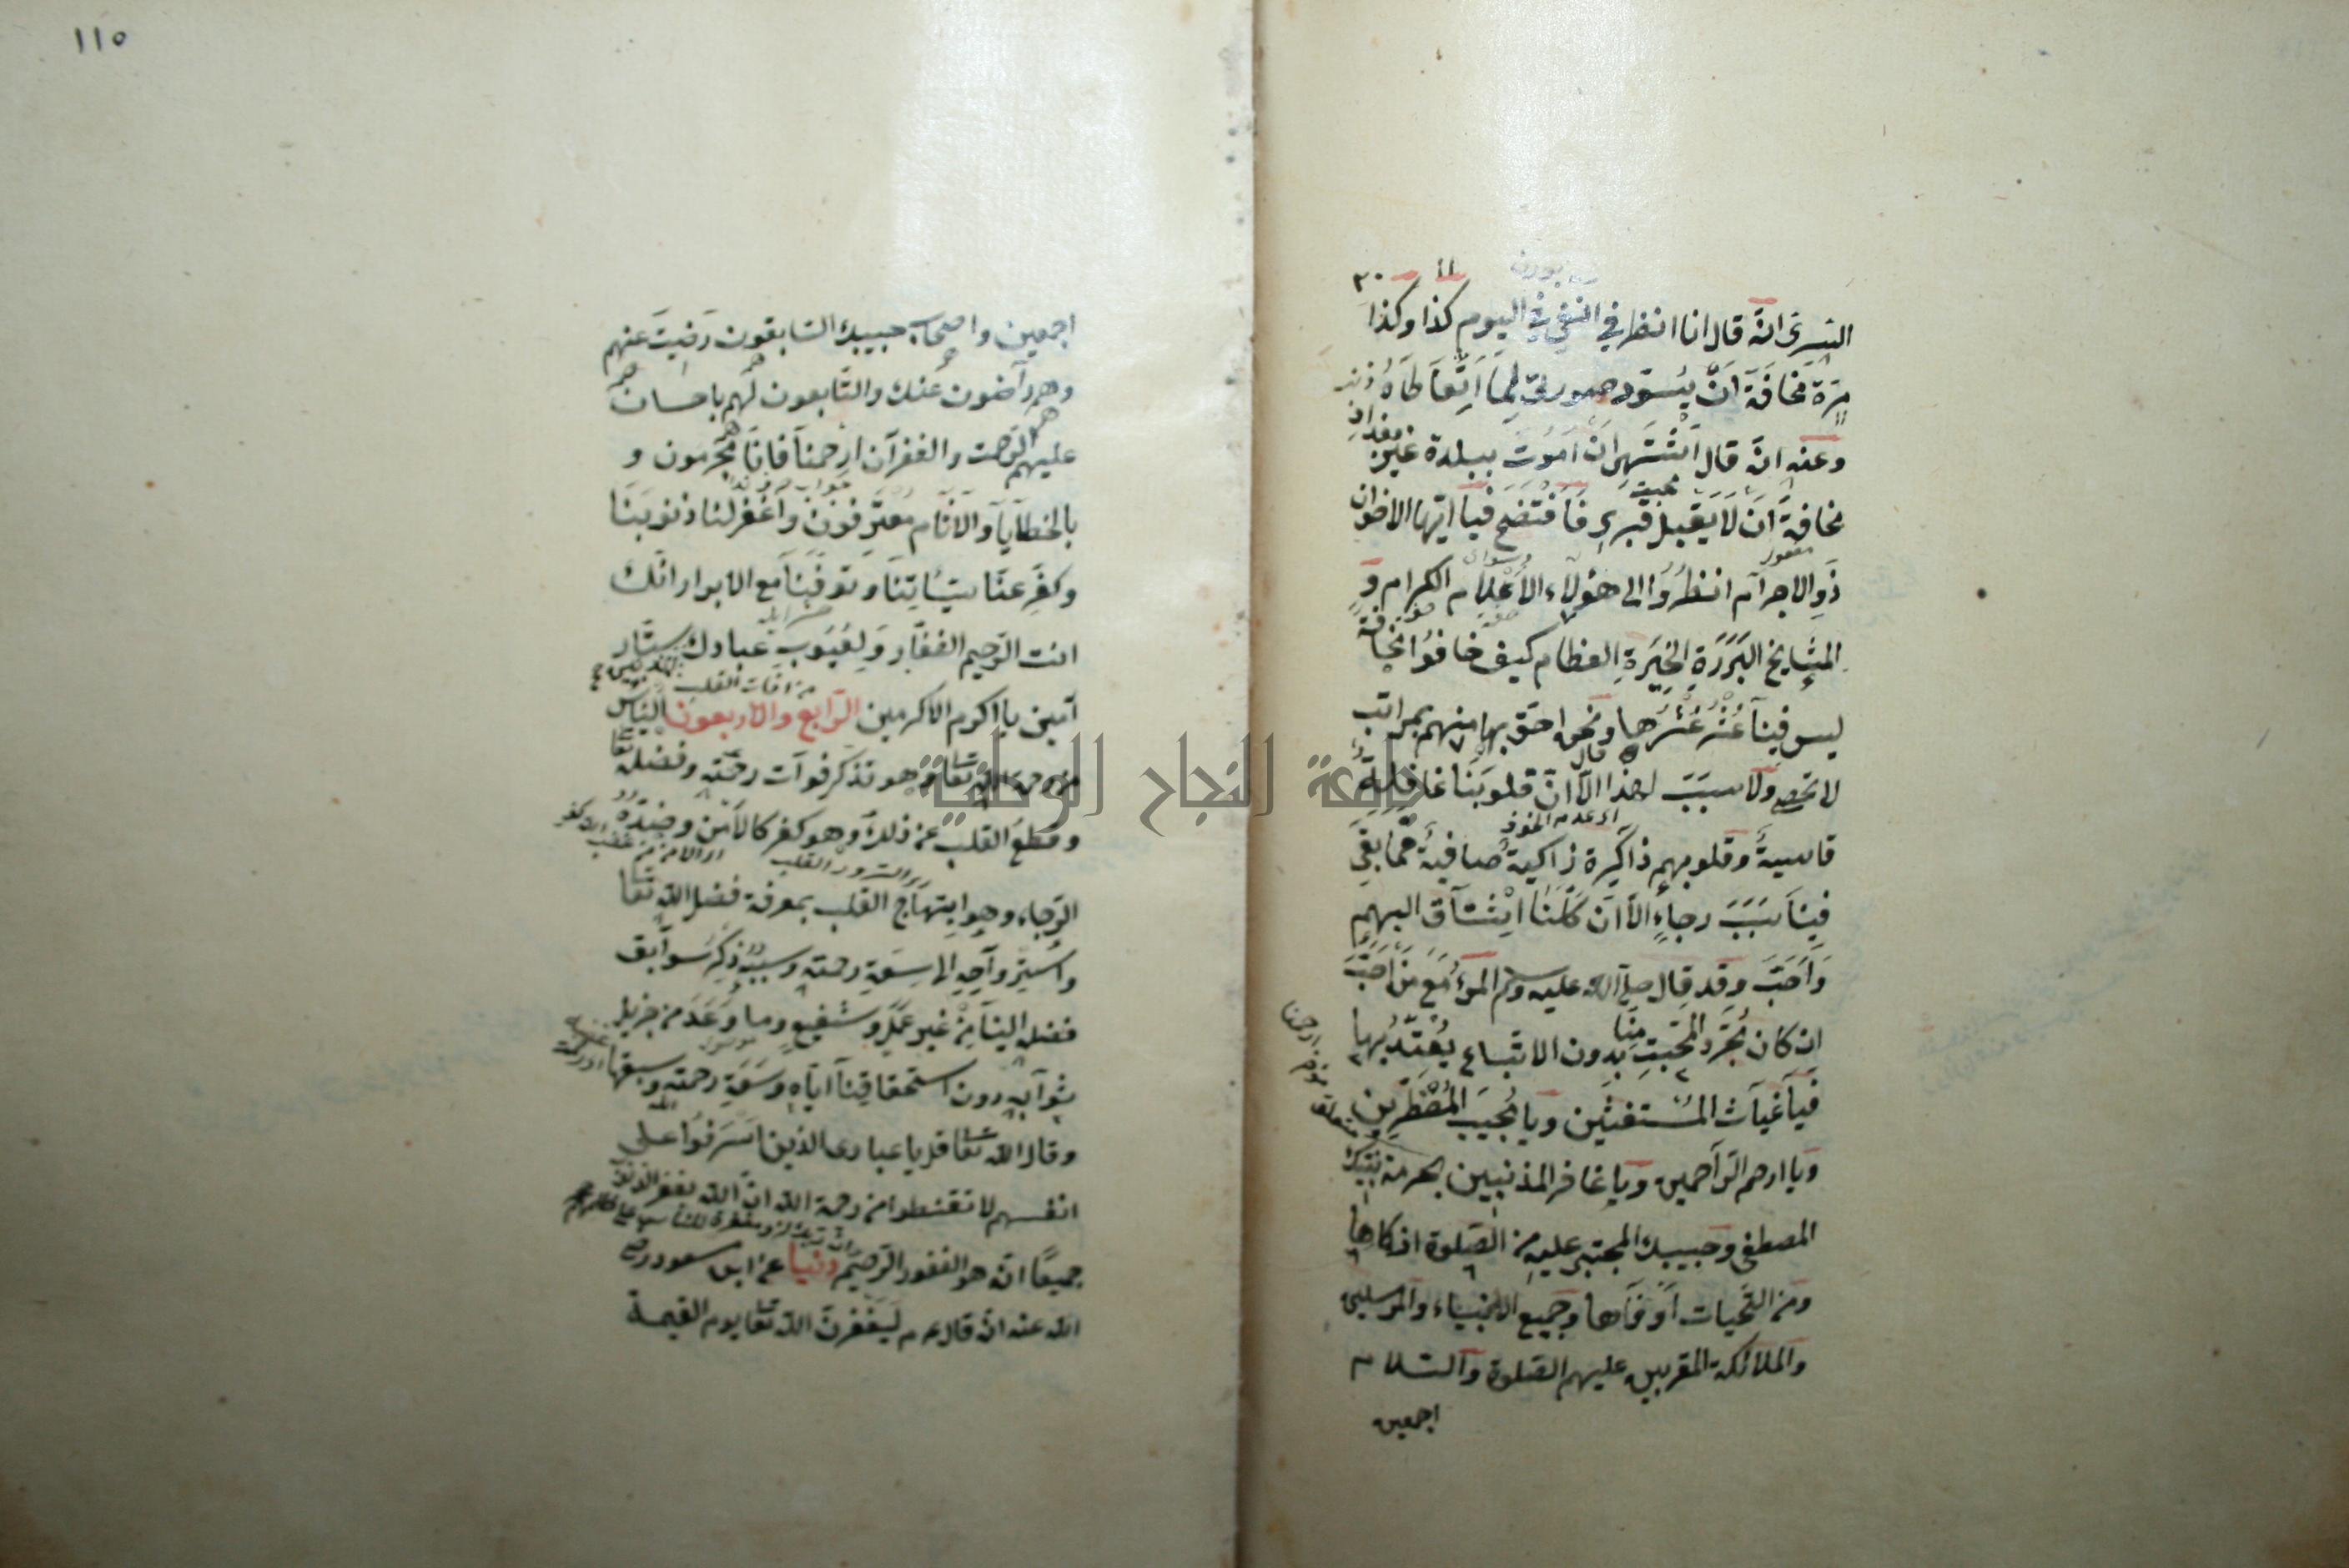 السرى انه قال انا انظر في اليوم كذا وكذا
مرة مخافة ان يسود صورتى لما اتعاطاه
وعنه انه قال اشتهى ان اموت ببلدة غير بغداد
مخافة ان لا يقبل قبرى فافتضح فيا ايها الاخوان
ذوالاجرام انظروا الى هؤلاء الاعلام الكرام و
المشايخ البررة الخيرة العظام كيف خافوا مخافة
ليس فينا عشر عشرها ونحن احق بها منهم بمراتب
لا تحصى ولا سبب لهذا الا ان قلوبنا غافلة
اى عدم الخوف
قاسية وقلوبهم ذاكرة زاكية صافية فما بقى
فينا سبب رجاء الا ان كلنا اشتاق اليهم
واحب وقد قال صلى الله عليه وسلم المرء مع من احب
ان كان مجرد المحبة منا بدون الاتباع يعتد بها
فيا غياث المستغيثين ويا مجيب المضطرين
ويا ارحم الراحمين ويا غافر المذنبين بحرمة نبيك
المصطفى وحبيبك المجتبى عليه من الصلوة ازكاها
ومن التحيات اوفاها وجميع الانبياء والمرسلين
والملائكة المقربين عليهم الصلوة والسلام
اجمعين
١١٥
اجمعين واصحاب حبيبك السابقون رضيت عنهم
وهم راضون عنك والتابعون لهم باحسان
عليهم الرحمة والغفران ارحمنا فانا مجرمون و
بالخطايا والاثام معترفون واغفر لنا ذنوبنا
وكفر عنا سيئاتنا وتوفنا مع الابرار انك
انت الرحيم الغفار ولعيوب عبادك ستار
من افات القلب
آمين يا اكرم الاكرمين الرابع والاربعون الياس
من رحمة الله تعا وهو تذكر فوات رحمته وفضله تعا
وقطع القلب عن ذلك وهو كفر كالامن وضده
الرجاء وهو ابتهاج القلب بمعرفة فضل الله تعا
واسترواحه الى سعة رحمته وسببه ذكر سوابق
فضله الينا من غير عمل وشفيع وما وعد من جزيل
ثوابه دون استحقاقنا اياه وسعة رحمته وسبقها
وقال الله تعا قل يا عبادى الذين اسرفوا على
انفسهم لا تقنطوا من رحمة الله ان الله يغفر الذنوب
جميعا انه هو الغفور الرحيم دنيا عن ابن مسعود رضى
الله عنه انه قال عم ليغفرن الله تعا يوم القيمة
جامعة النجاح الوطنية